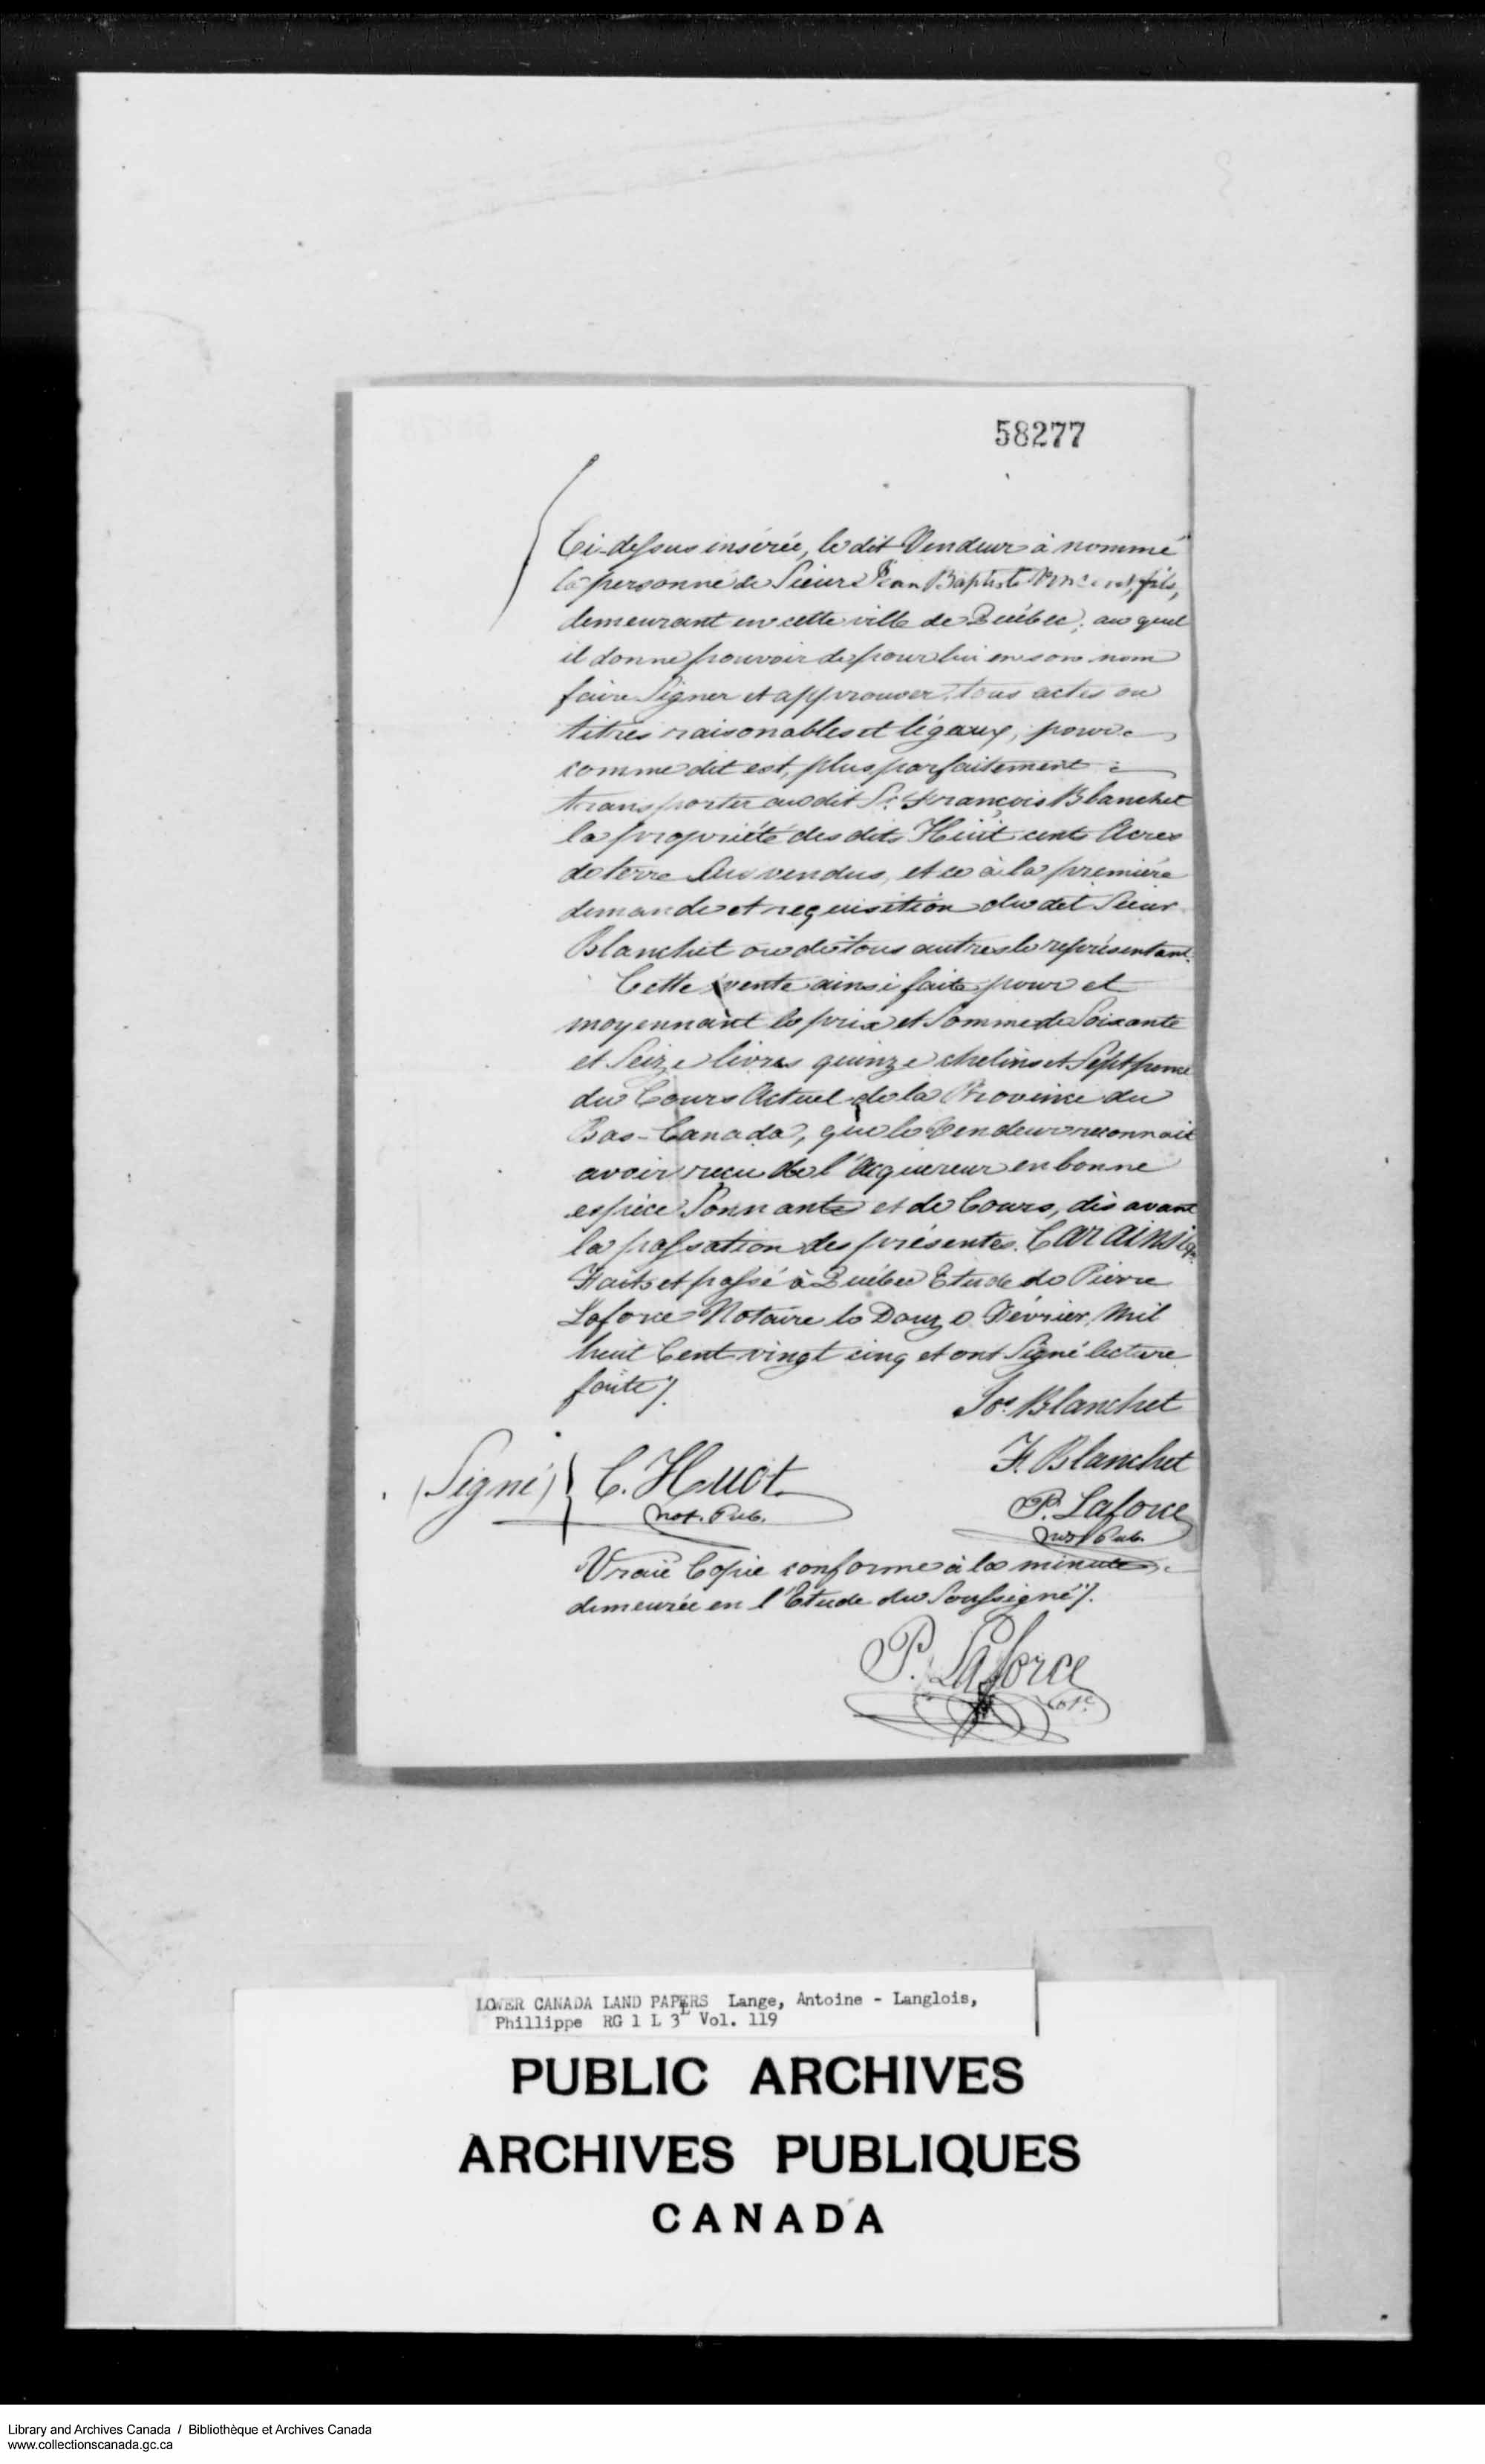 58277
Ci-dessus insérée, le dit Vendeur à nommé
la personne de Sieur Jean Baptiste fils,
demeurant en cette ville de Québec, au quel
il donne pouvoir de pour lui en son nom
faire Signer et approuver, tous actes ou
titres raisonables et légaux, pour
comme dit est, plus parfaitement
transporter au dit Sr. François Blanchet
la propriété des dits Huit cents Acres
de terre Sus vendus, et ce à la première
demande et requisition du dit Sieur
Blanchet ou de tous autres le représentant.
Cette vente ainsi faite pour et
moyennant le prix et Somme de Soixante
et Seize livres quinze chelins et Sept pence
du Cours Actuel de la Province du
Bas-Canada, que le Vendeur reconnait
avoir reçu de l'Acquereur en bonne
espèce Sonnante et de Cours, dès avant
la passation des présentes. Car ainsi &c.
Fait et passé à Québec Etude de Pierre
Laforce Notaire le Douze Février, Mil
huit Cent vingt cinq et ont Signé lecture
faite /.
Jos. Blanchet
F. Blanchet
(Signé) } C. Huot
Not. Pub.
P. Laforce
Not. Pub.
Vraie Copie conforme à la minute
demeurée en l'Etude du Soussigné /.
P. Laforce
Not.
LOWER CANADA LAND PAPERS Lange, Antoine - Langlois,
Phillippe RG 1 L 3L Vol. 119
PUBLIC ARCHIVES
ARCHIVES PUBLIQUES
CANADA
Library and Archives Canada / Bibliothèque et Archives Canada
www.collectionscanada.gc.ca